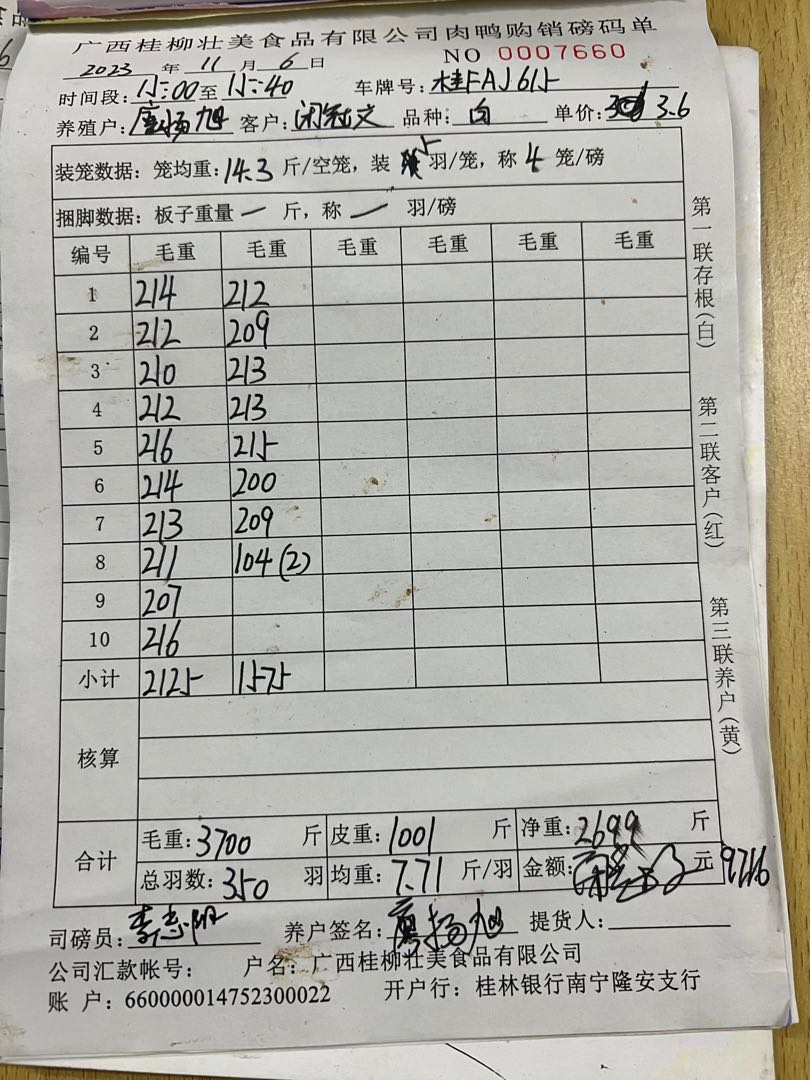 广西桂柳壮美食品有限公司肉鸭购销磅码单
2023 年 11 月 6 日 NO 0007660
时间段: 15:00 至 15:40 车牌号: 桂FAJ615
养殖户: 廖扬旭 客户: 闭冠文 品种: 白 单价: 3.6
装笼数据: 笼均重: 14.3 斤/空笼, 装 5 羽/笼, 称 4 笼/磅
捆脚数据: 板子重量 一 斤, 称 一 羽/磅
编号 毛重 毛重 毛重 毛重 毛重 毛重
1 214 212
2 212 209
3 210 213
4 212 213
5 216 215
6 214 200
7 213 209
8 211 104(2)
9 207
10 216
小计 2125 1575
核算
合计
毛重: 3700 斤 皮重: 1001 斤 净重: 2699 斤
总羽数: 350 羽 均重: 7.71 斤/羽 金额: 元 9716
司磅员: 李志阳 养户签名: 廖扬旭 提货人:
公司汇款帐号: 户名: 广西桂柳壮美食品有限公司
账 户: 660000014752300022 开户行: 桂林银行南宁隆安支行
第一联存根(白)
第二联客户(红)
第三联养户(黄)